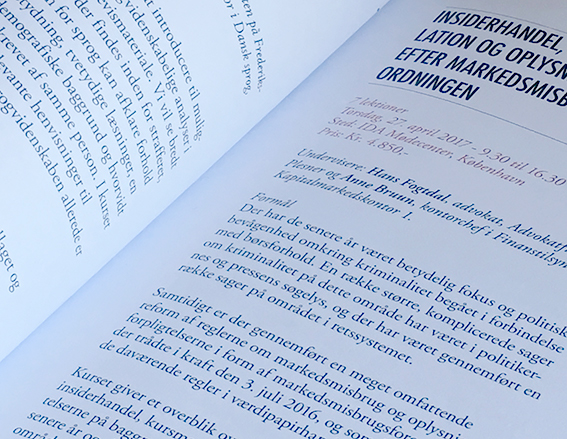 en på Frederiks-
or i Dansk sprog,
t introducere til mulig-
videnskabelige analyser i
evismateriale. Vi vil se bredt
der findes inden for strafferet,
n for sprog kan afklare forhold
rydning, tvetydige læsninger, en
ografiske baggrund og hvorvidt
revet af samme person. I kurset
evante henvisninger til
ogvidenskaben allerede er
laget og
INSIDERHANDEL,
LATION OG OPLYSN
EFTER MARKEDSMISB
ORDNINGEN
7 lektioner
Torsdag, 27. april 2017 - 9.30 til 16.30
Sted: IDA Mødecenter, København
Pris: Kr. 4.850,-
Undervisere: Hans Fogtdal, advokat, Advokatf
Plesner og Anne Bruun, kontorchef i Finanstilsyn
Kapitalmarkedskontor 1.
Formål
Der har de senere år været betydelig fokus og politisk
bevågenhed omkring kriminalitet begået i forbindelse
med børsforhold. En række større, komplicerede sager
om kriminalitet på dette område har været i politiker-
nes og pressens søgelys, og der har været gennemført en
række sager på området i retssystemet.
Samtidigt er der gennemført en meget omfattende
reform af reglerne om markedsmisbrug og oplysn
forpligtelserne i form af markedsmisbrugsfor
der trådte i kraft den 3. juli 2016, og som
de daværende regler i værdipapirhan
Kurset giver et overblik ov
insiderhandel, kursm
telserne på bagg
senere år og
områ